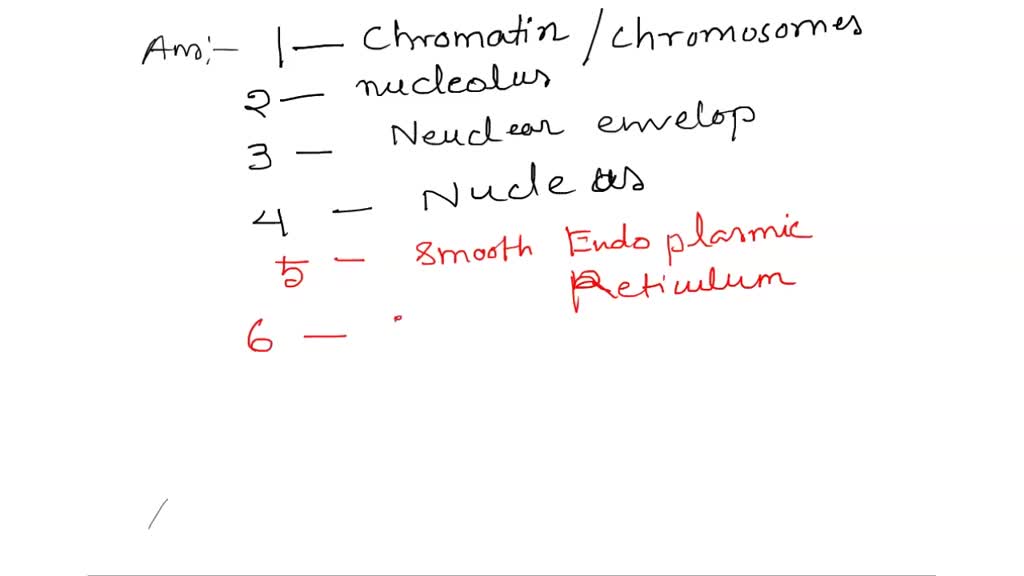 Ans:- 1 — Chromatin / chromosomes
2 — nucleolus
3 — Neuclear envelop
4 — Nucleus
5 — Smooth Endoplasmic
Reticulum
6 —